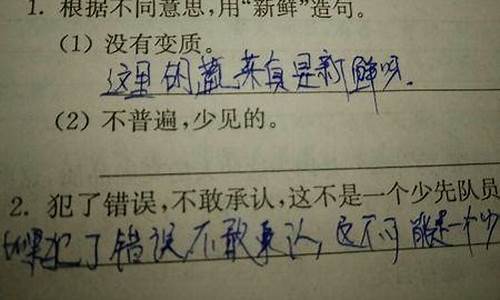 1. 根据不同意思，用“新鲜”造句。
(1) 没有变质。
这里的蔬菜真是新鲜呀。
(2) 不普遍，少见的。
2. 犯了错误，不敢承认，这不是一个少先队员
如果犯了错误不敢承认，这不可能是一个少